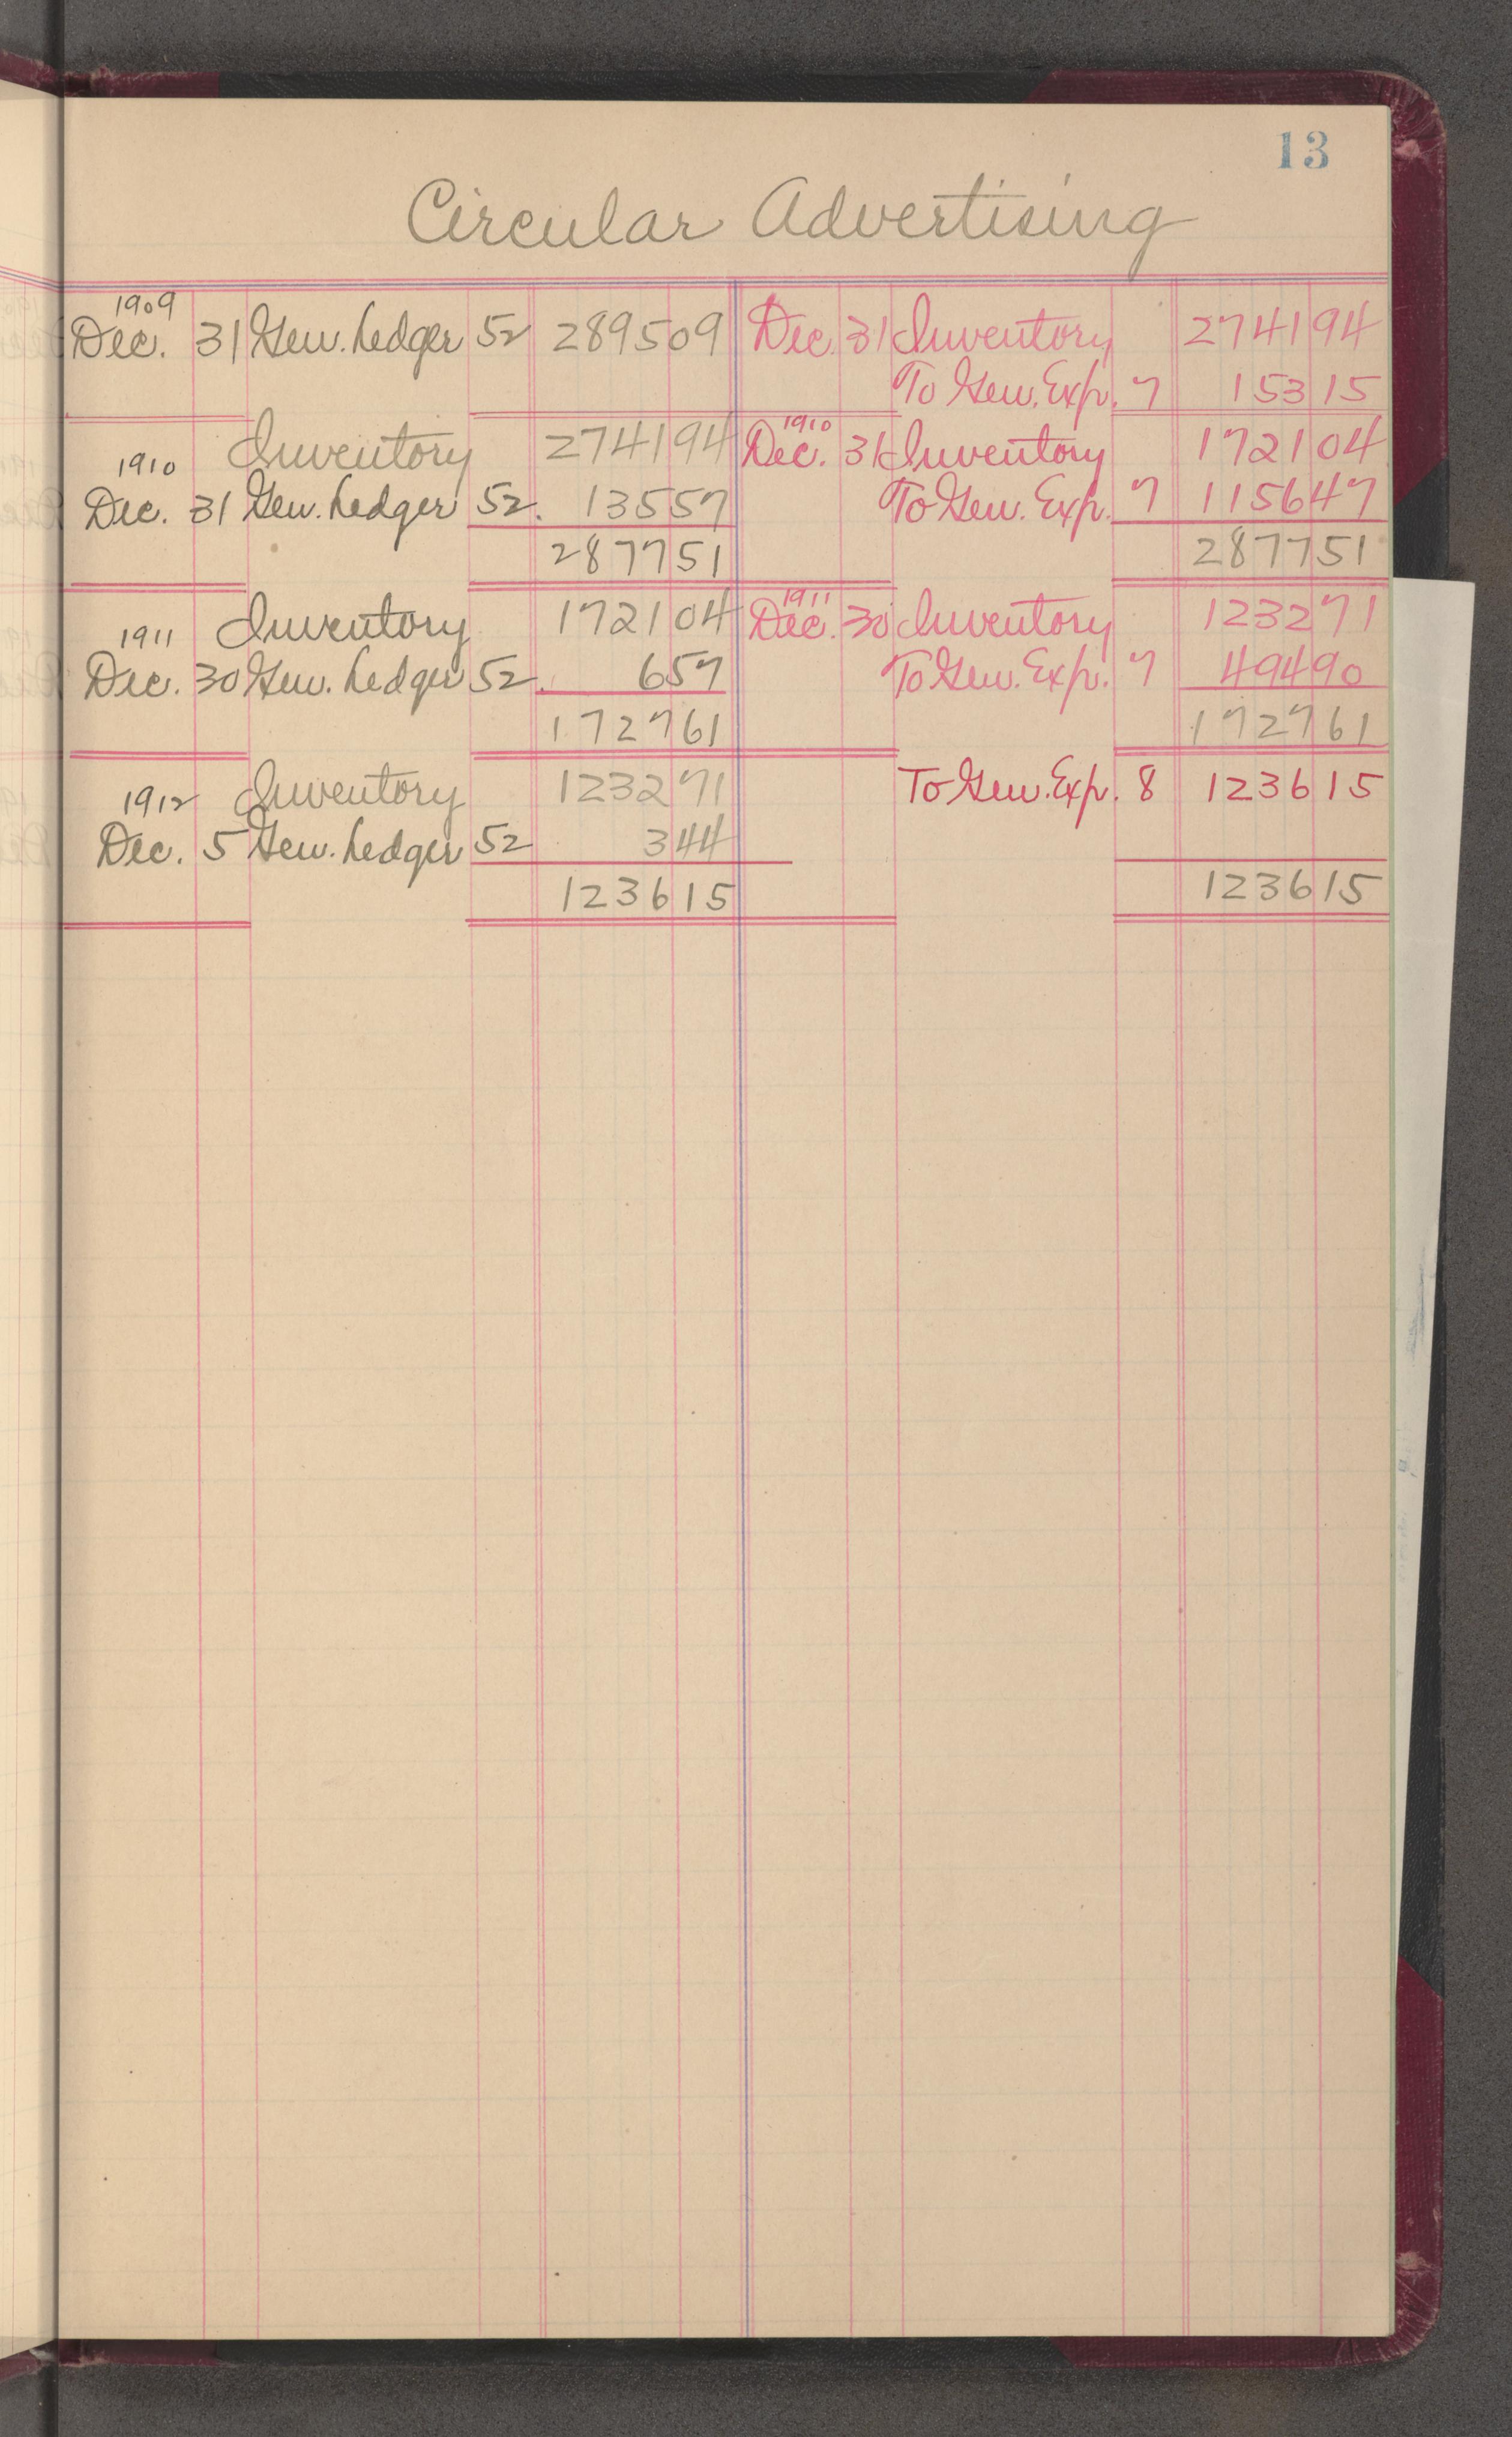 13
Circular Advertising
1909
Dec. 31 Gen. Ledger 52 2895 09 Dec. 31 Inventory 2741 94
To Gen. Exp. 7 153 15
Inventory 2741 94 1910 Dec. 31 Inventory 1721 04
1910
Dec. 31 Gen. Ledger 52. 135 57 To Gen. Exp. 7 1156 47
2877 51 2877 51
Inventory 1721 04 1911 Dec. 30 Inventory 1232 71
1911
Dec. 30 Gen. Ledger 52. 6 57 To Gen. Exp. 7 494 90
1727 61 1727 61
Inventory 1232 71 To Gen. Exp. 8 1236 15
1912
Dec. 5 Gen. Ledger 52 3 44
1236 15 1236 15